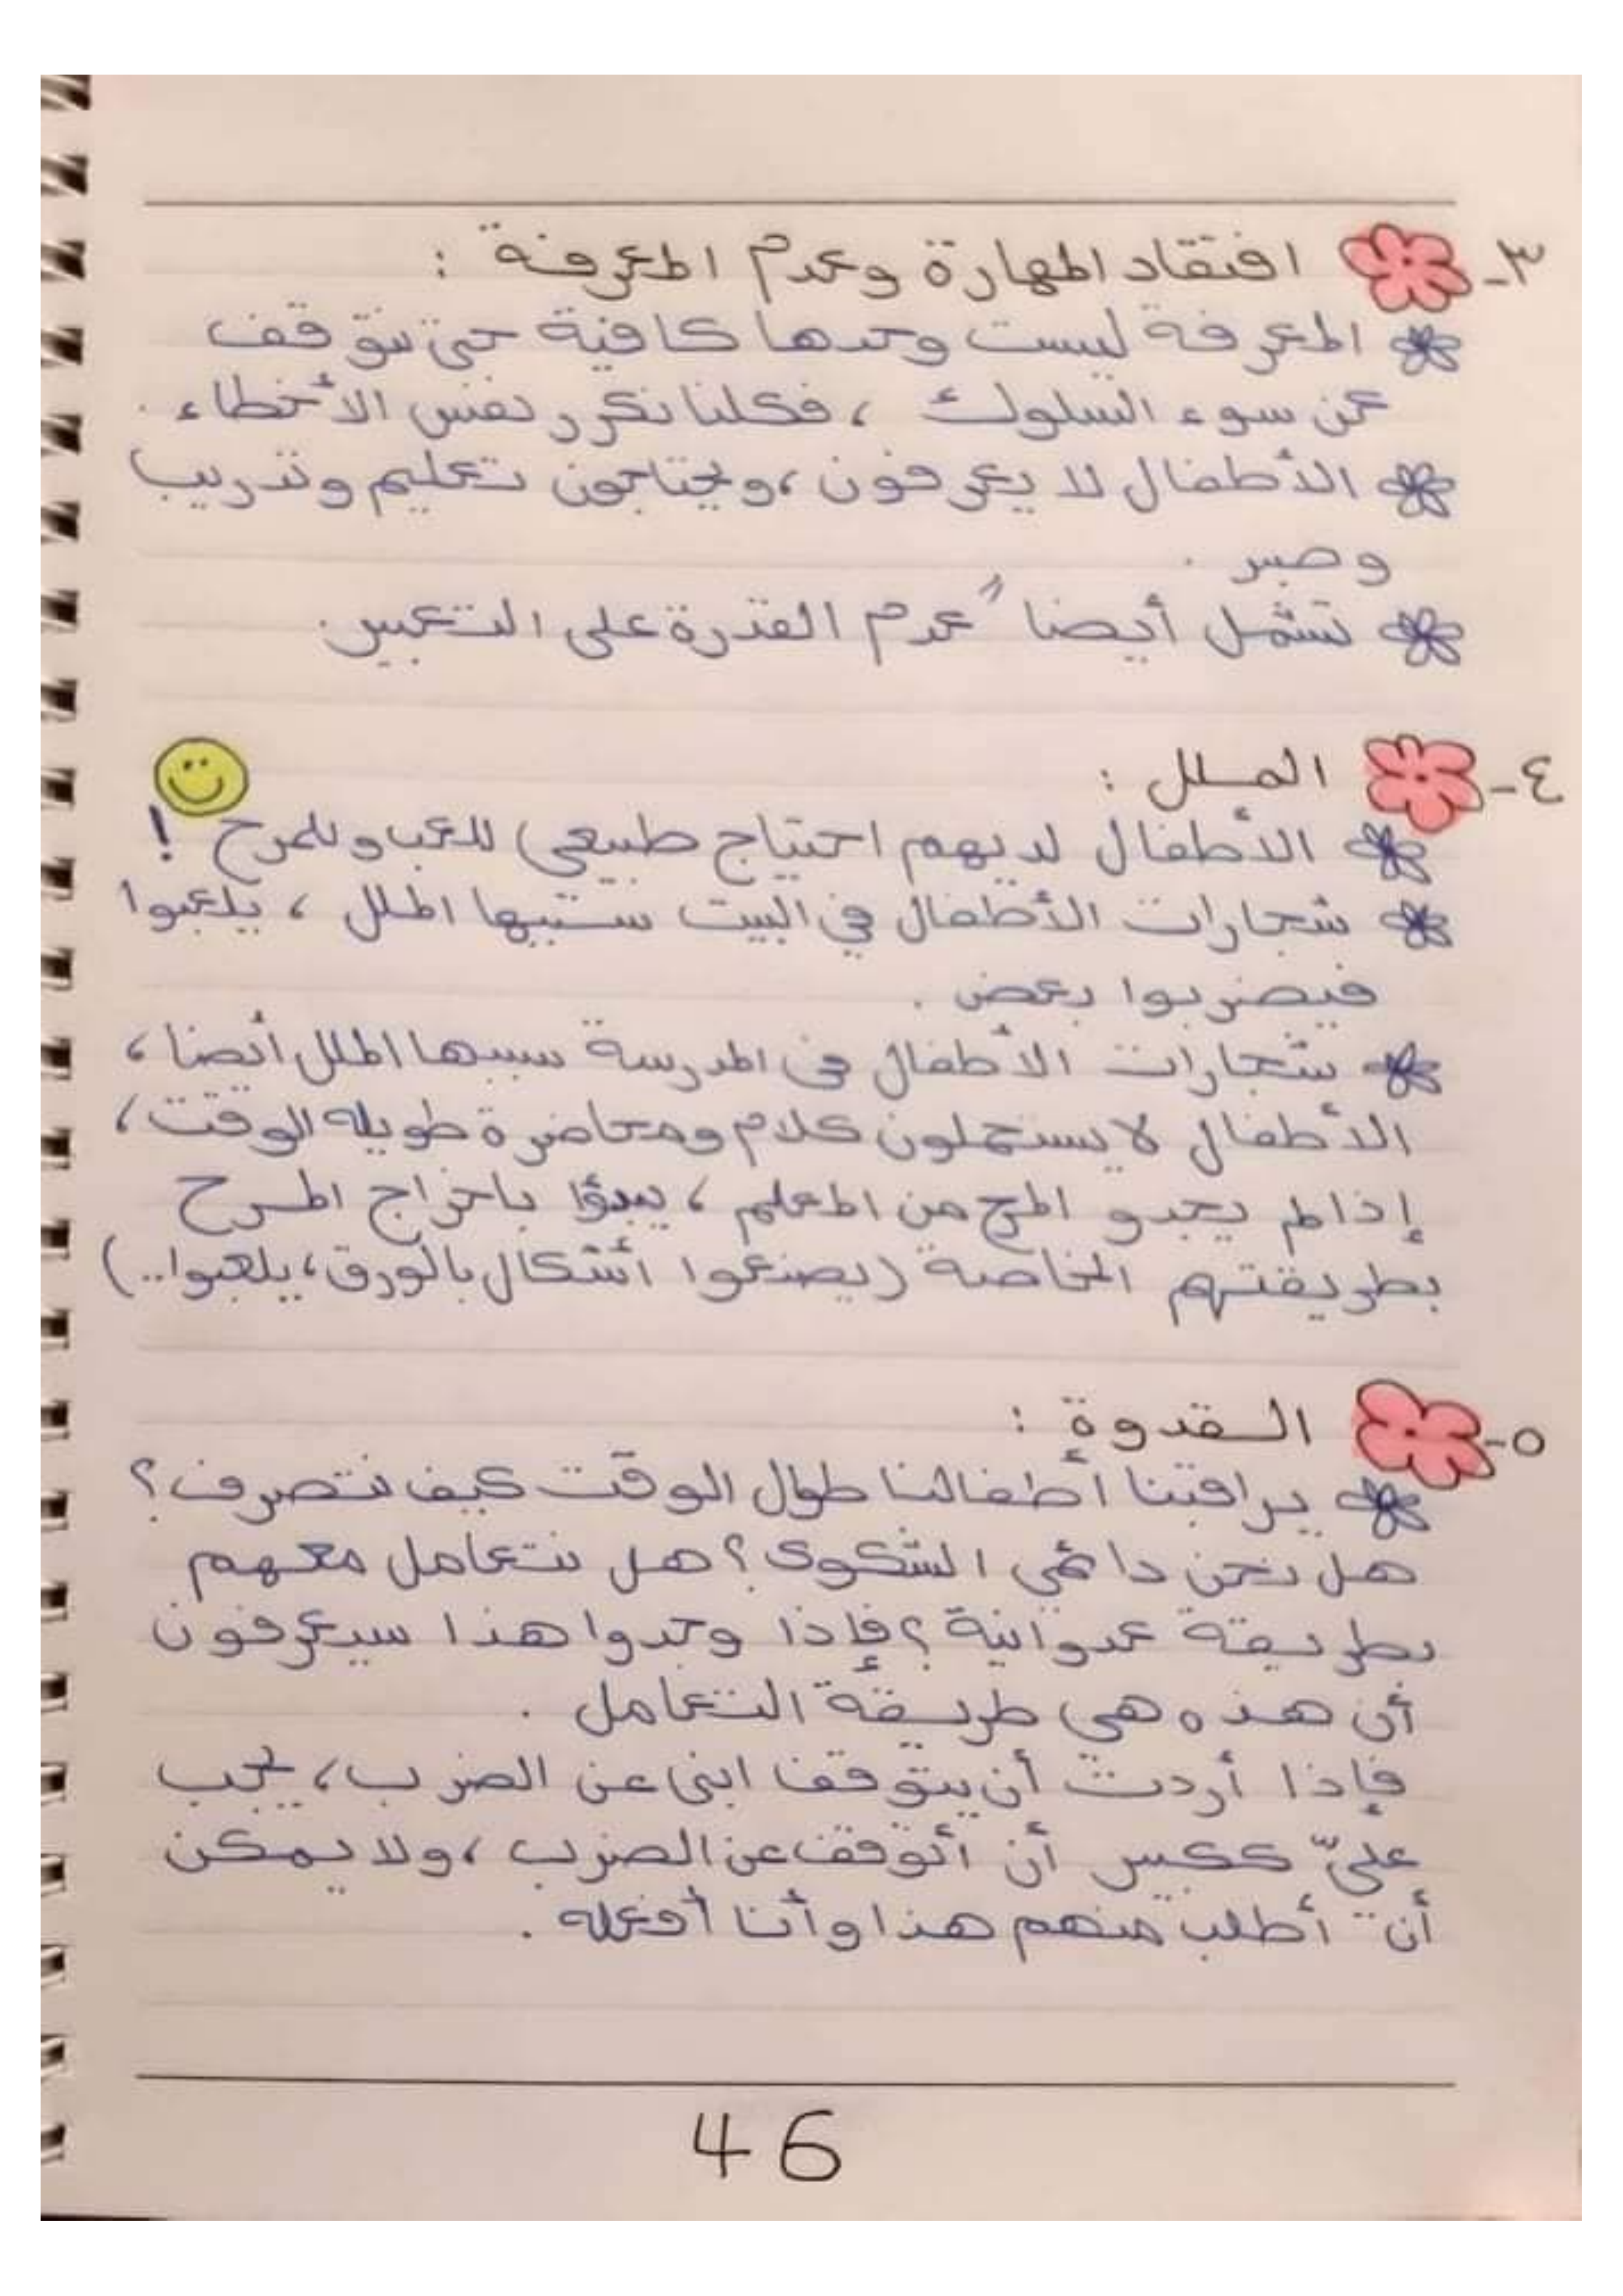 ٣- افتقاد المهارة وعدم المعرفة :
المعرفة ليست وحدها كافية حتى نتوقف
عن سوء السلوك ، فكلنا نكرر نفس الأخطاء .
الأطفال لا يعرفون ، ويحتاجون تعليم وتدريب
وصبر .
تشمل أيضاً عدم القدرة على التعبير .
٤- الملل :
الأطفال لديهم احتياج طبيعي للعب وللمرح !
شجارات الأطفال في البيت سببها الملل ، يلعبوا
فيضربوا بعض .
شجارات الأطفال في المدرسة سببها الملل أيضا ،
الأطفال لا يستحملون كلام ومحاضرة طويله الوقت ،
إذا لم يجدو المرح من المعلم ، يبدؤا باخراج المرح
بطريقتهم الخاصة (يصنعوا أشكال بالورق ، يلعبوا..)
٥- القدوة :
يراقبنا أطفالنا طوال الوقت كيف نتصرف ؟
هل نحن دائمي الشكوى ؟ هل نتعامل معهم
بطريقة عدوانية ؟ فإذا وجدوا هذا سيعرفون
أن هذه هي طريقة التعامل .
فإذا أردت أن يتوقف ابني عن الضرب ، يجب
عليّ ككبير أن أتوقف عن الضرب ، ولا يمكن
أن أطلب منهم هذا وأنا أفعله .
46